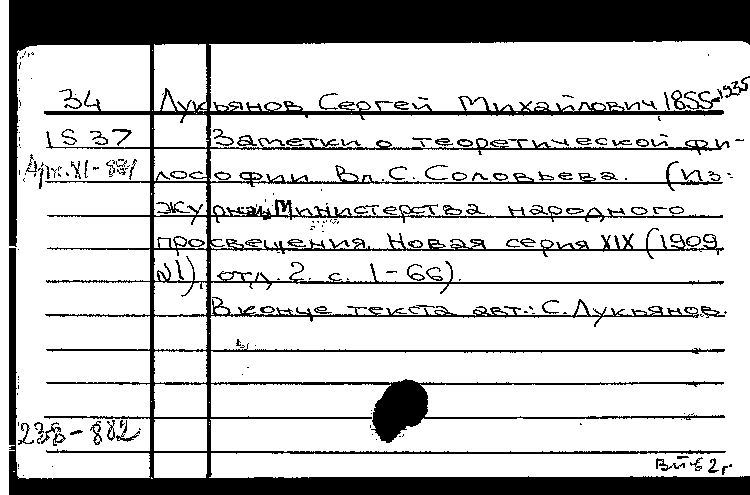 34 Лукьянов, Сергей Михайлович, 1855-1935
1537 Заметки о теоретической фи-
Арх.XI-881 лософии Вл. С. Соловьева. (Из:
журнал Министерства народного
просвещения. Новая серия XIX (1909,
№1), отд. 2. с. 1-66).
В конце текста авт.: С. Лукьянов.
238-882